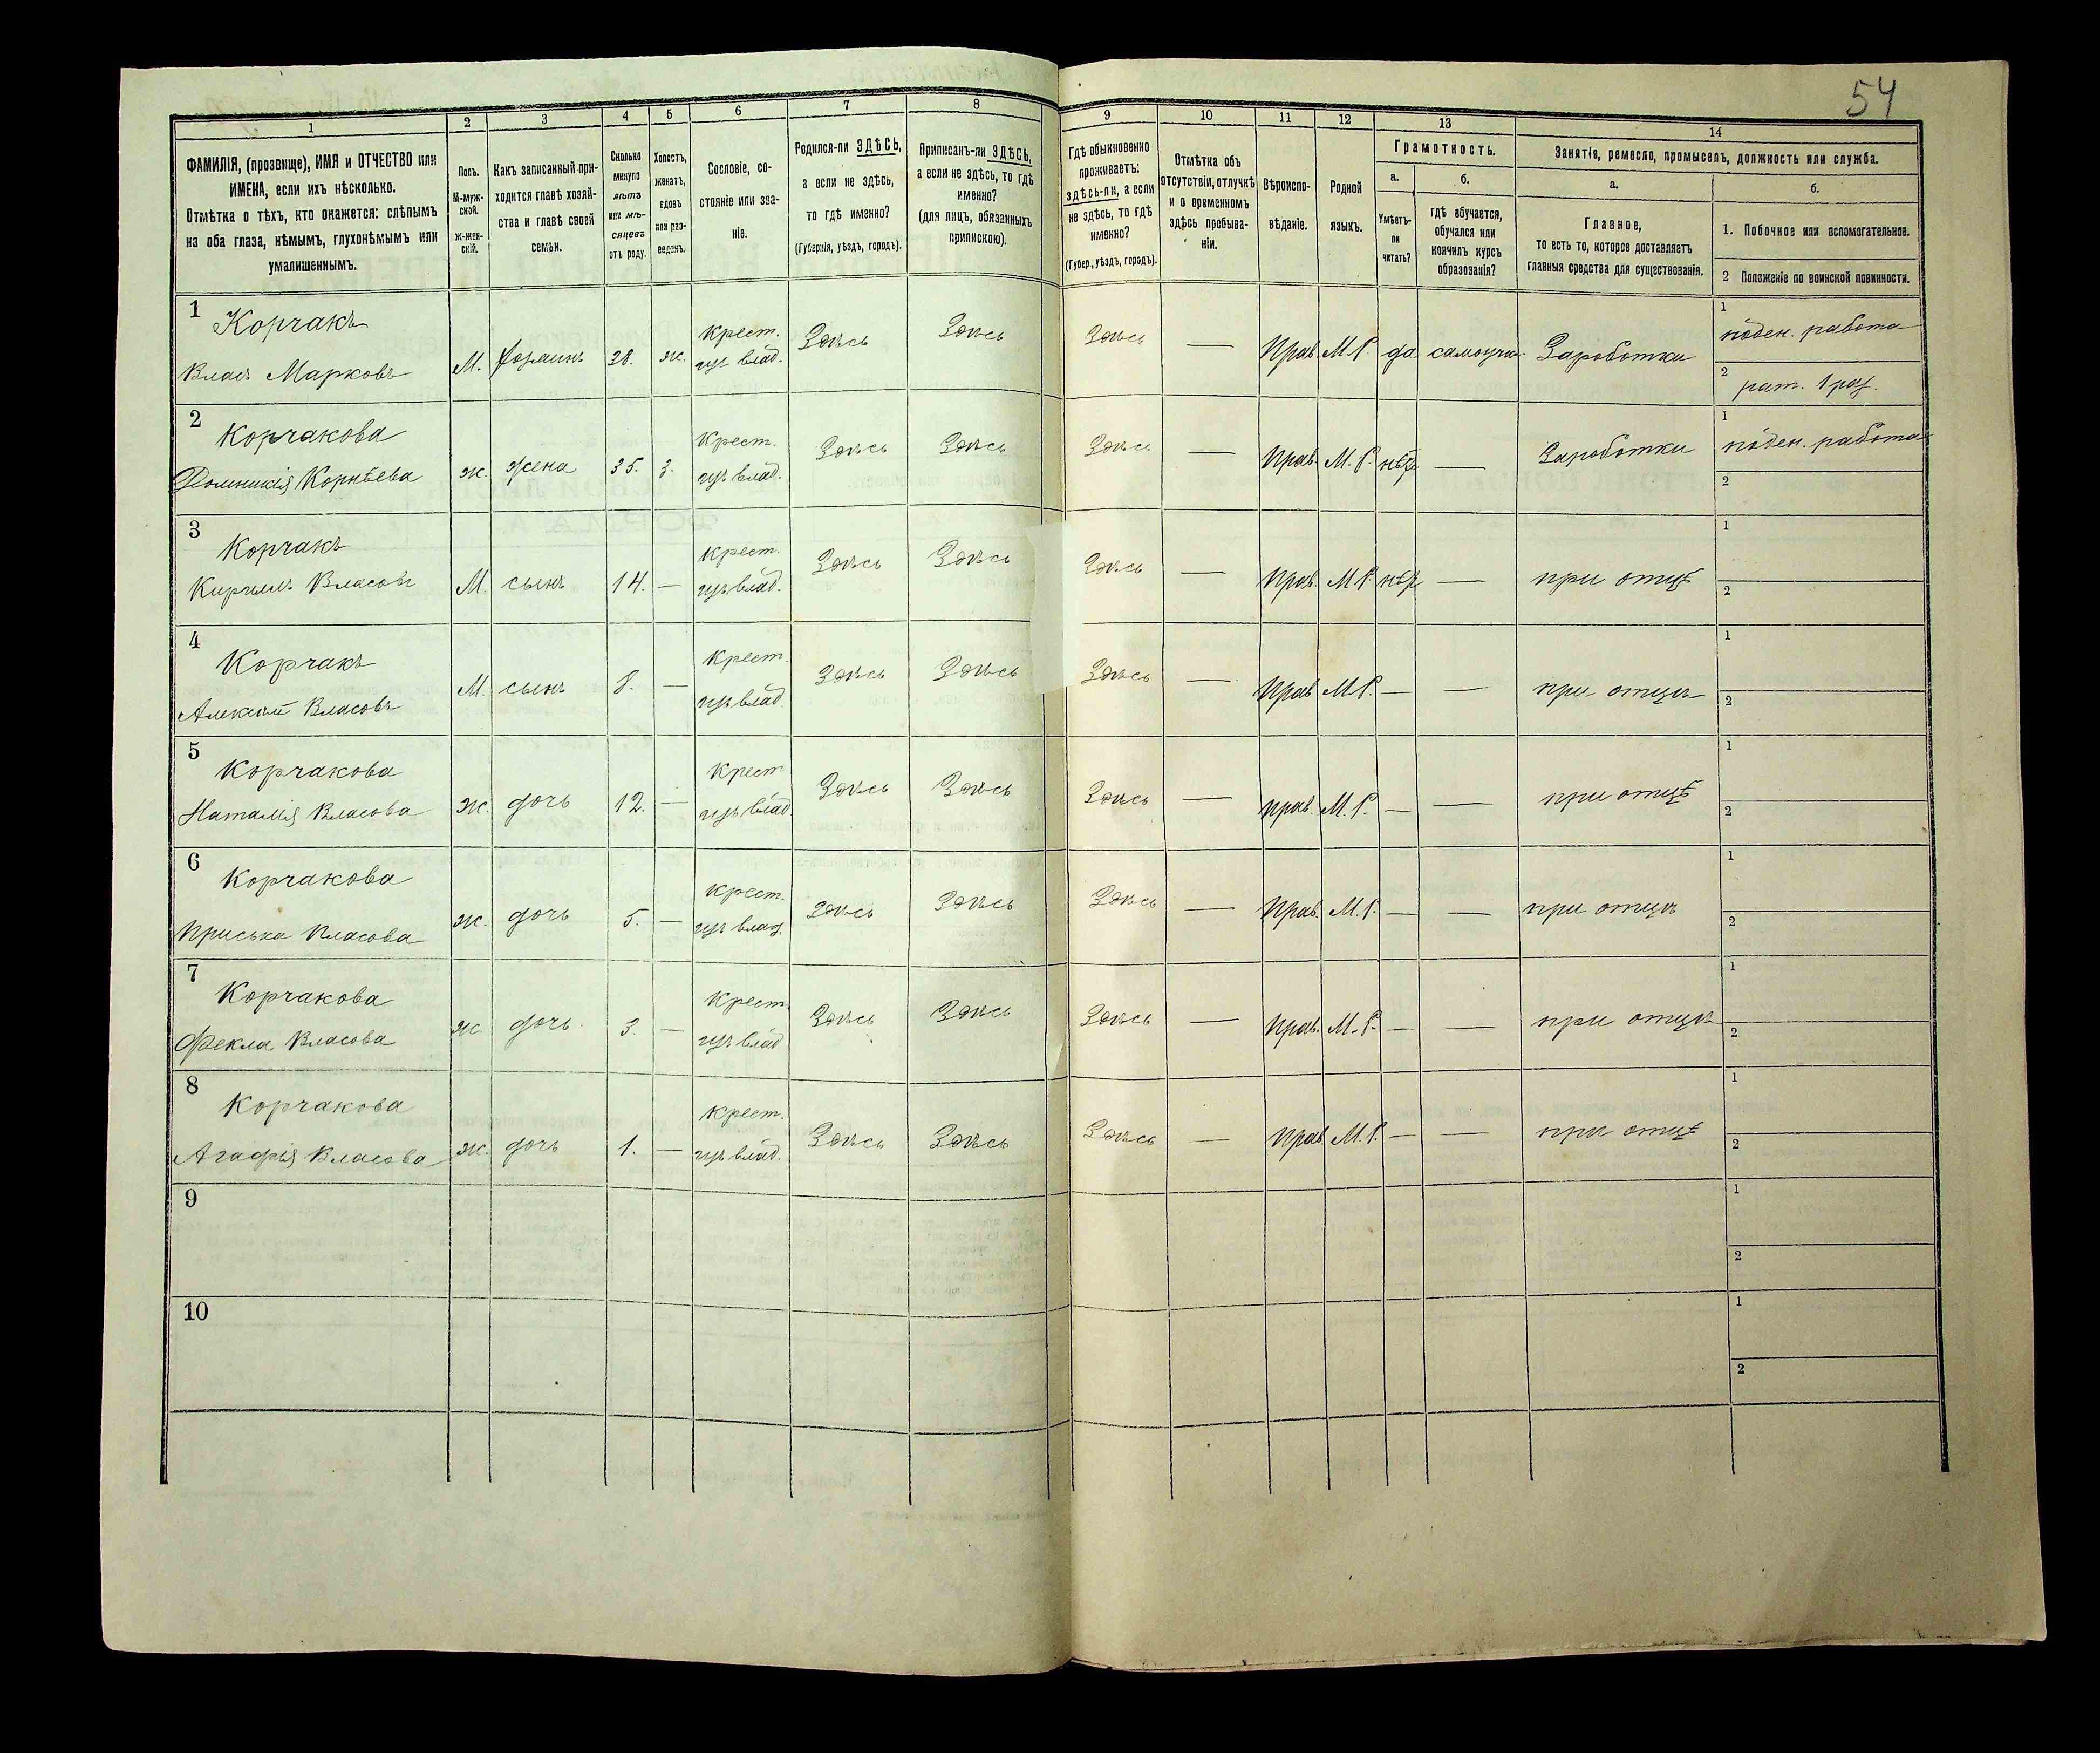 54
1 2 3 4 5 6 7 8 9 10 11 12 13 14
ФАМИЛІЯ, (прозвище), ИМЯ и ОТЧЕСТВО или
ИМЕНА, если ихъ нѣсколько.
Отмѣтка о тѣхъ, кто окажется: слѣпымъ
на оба глаза, нѣмымъ, глухонѣмымъ или
умалишеннымъ.
Полъ.
М-муж-
ской.
Ж-жен-
скій.
Какъ записанный при-
ходится главѣ хозяй-
ства и главѣ своей
семьи.
Сколько
минуло
лѣтъ
или мѣ-
сяцевъ
отъ роду.
Холостъ,
женатъ,
вдовъ
или раз-
веденъ.
Сословіе, со-
стояніе или зва-
ніе.
Родился-ли ЗДѢСЬ,
а если не здѣсь,
то гдѣ именно?
(Губернія, уѣздъ, городъ).
Приписанъ-ли ЗДѢСЬ,
а если не здѣсь, то гдѣ
именно?
(для лицъ, обязанныхъ
припискою).
Гдѣ обыкновенно
проживаетъ:
здѣсь-ли, а если
не здѣсь, то гдѣ
именно?
(Губер., уѣздъ, городъ).
Отмѣтка объ
отсутствіи, отлучкѣ
и о временномъ
здѣсь пребыва-
ніи.
Вѣроиспо-
вѣданіе.
Родной
языкъ.
Грамотность.
а.
Умѣетъ-
ли
читать?
б.
гдѣ обучается,
обучался или
кончилъ курсъ
образованія?
Занятіе, ремесло, промыселъ, должность или служба.
а.
Главное,
то есть то, которое доставляетъ
главныя средства для существованія.
б.
1. Побочное или вспомогательное.
2 Положеніе по воинской повинности.
1 Корчакъ
Власъ Марковъ М. хозяинъ 38. ж. Крест. изъ влад. Здѣсь Здѣсь Здѣсь — Прав. М.Р. да самоучка Заработки
1 поден. работа
2 рат. 1 раз.
2 Корчакова
Корнѣева ж. жена 35. З. Крест. изъ влад. Здѣсь Здѣсь Здѣсь — Прав. М.Р. нѣтъ — Заработки
1 поден. работа
2
3 Корчакъ
Кириллъ Власовъ М. сынъ 14. — Крест. изъ влад. Здѣсь Здѣсь Здѣсь — Прав. М.Р. нѣтъ — при отцѣ
1
2
4 Корчакъ
Алексѣй Власовъ М. сынъ 8. — Крест. изъ влад. Здѣсь Здѣсь Здѣсь — Прав. М.Р. — — при отцѣ
1
2
5 Корчакова
Наталія Власова ж. дочь 12. — Крест. изъ влад. Здѣсь Здѣсь Здѣсь — Прав. М.Р. — — при отцѣ
1
2
6 Корчакова
Приська Власова ж. дочь 5. — Крест. изъ влад. Здѣсь Здѣсь Здѣсь — Прав. М.Р. — — при отцѣ
1
2
7 Корчакова
Фекла Власова ж. дочь 3. — Крест. изъ влад. Здѣсь Здѣсь Здѣсь — Прав. М.Р. — — при отцѣ
1
2
8 Корчакова
Агафія Власова ж. дочь 1. — Крест. изъ влад. Здѣсь Здѣсь Здѣсь — Прав. М.Р. — — при отцѣ
1
2
9
1
2
10
1
2